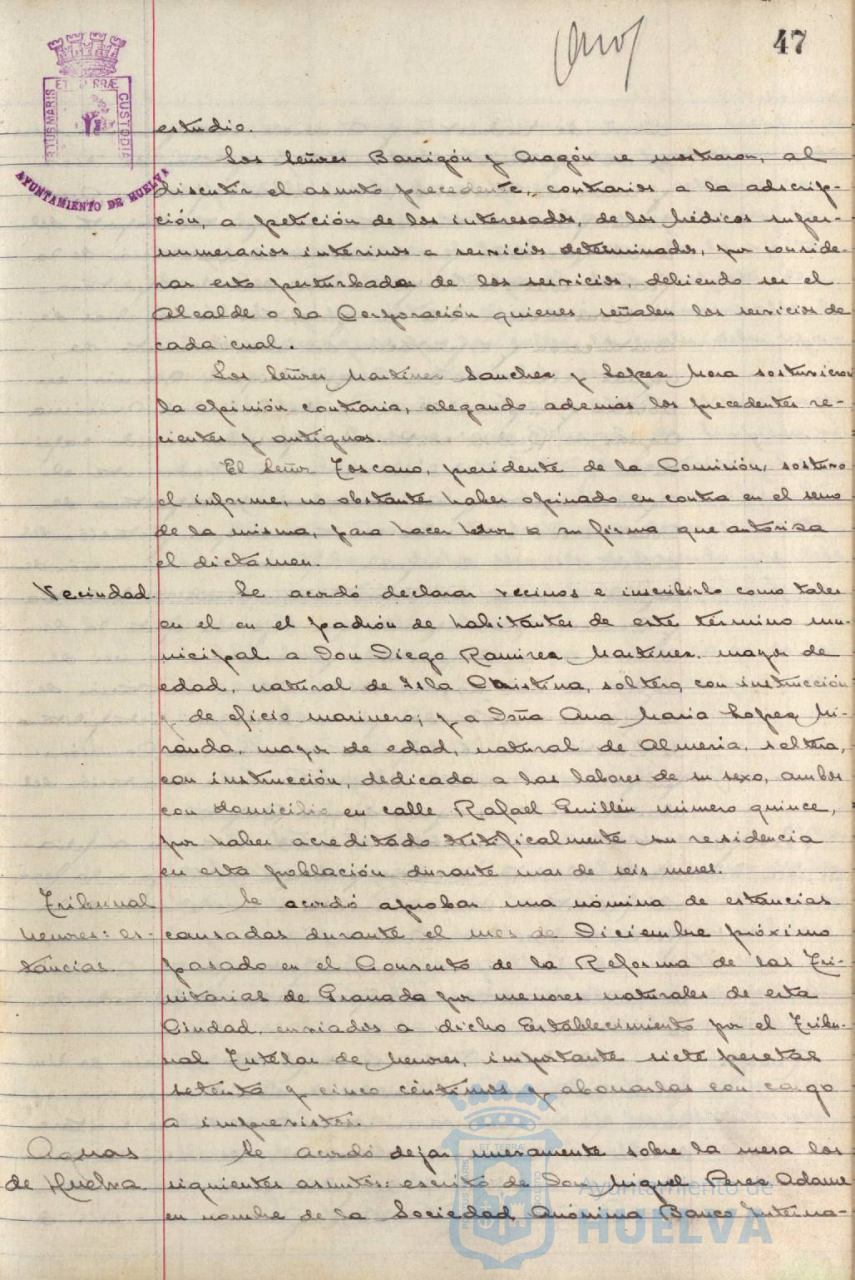 47
ET TERRÆ
PORTUS MARIS
CUSTODIA
AYUNTAMIENTO DE HUELVA
estudio.
Los Señores Barrigón y Aragón se mostraron, al
discutir el asunto precedente, contrarios a la adscrip-
ción, a petición de los interesados, de los Médicos super-
numerarios interinos a servicios determinados, por conside-
rar esto perturbador de los servicios, debiendo ser el
Alcalde o la Corporación quienes señalen los servicios de
cada cual.
Los Señores Martínez Sanchez y Lopez Mora sostuvieron
la opinión contraria, alegando además los precedentes re-
cientes y antiguos.
El Señor Toscano, presidente de la Comisión, sostuvo
el informe, no obstante haber opinado en contra en el seno
de la misma, para hacer honor a su firma que autoriza
el dictámen.
Vecindad.
Se acordó declarar vecinos e inscribirlo como tales
en el en el padrón de habitantes de este término mu-
nicipal a Don Diego Ramirez Martinez, mayor de
edad, natural de Isla Cristina, soltero, con instrucción
y de oficio marinero; y a Doña Ana Maria Lopez Mi-
randa, mayor de edad, natural de Almeria, soltera,
con instrucción, dedicada a las labores de su sexo, ambos
con domicilio en calle Rafael Guillén número quince,
por haber acreditado testificalmente su residencia
en esta población durante mas de seis meses.
Tribunal
menores: es-
tancias
Se acordó aprobar una nómina de estancias
causadas durante el mes de Diciembre próximo
pasado en el Convento de la Reforma de las Tri-
nitarias de Granada por menores naturales de esta
Ciudad, enviados a dicho Establecimiento por el Tribu-
nal Tutelar de Menores, importante siete pesetas
setenta y cinco céntimos y abonarlas con cargo
a imprevistos.
Aguas
de Huelva
Se acordó dejar nuevamente sobre la mesa los
siguientes asuntos: escrito de Don Miguel Perez Adame
en nombre de la Sociedad Anónima Banco Interna-
Ayuntamiento de
HUELVA